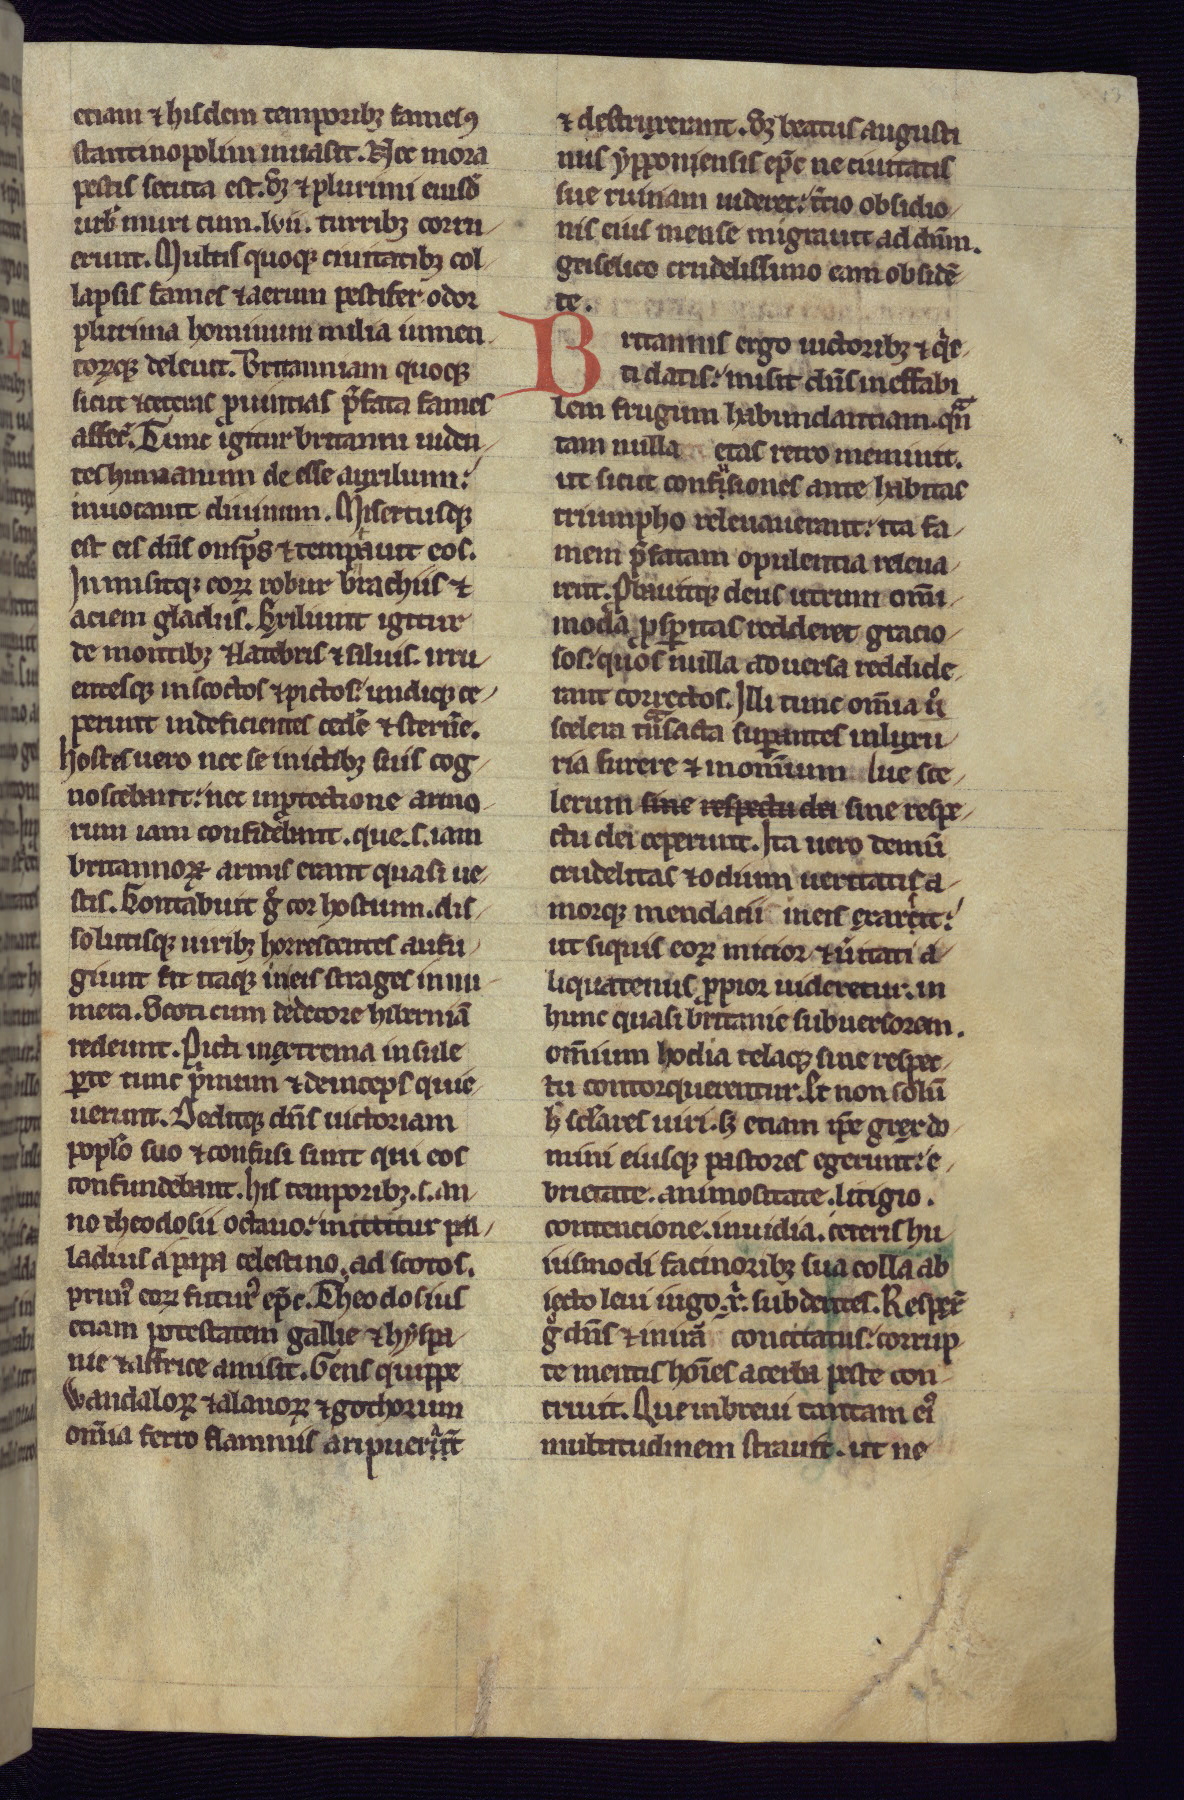 etiam ⁊ hisdem temporibꝫ fames ꝯ
stantinopolim inuasit. Nec mora
pestis secuta est. Sꝫ ⁊ plurimi eiusd̄
urb̄ muri cum .lvii. turribꝫ corru
erunt. Multis quoqꝫ ciuitatibꝫ col
lapsis fames ⁊ aerum pestifer odor
plurima hominum milia iumen
torqꝫ deleuit. Britanniam quoqꝫ
sicut ⁊ ceteras ꝓuintias p̄fata fames
affec̄. Tunc igitur britanni uiden
tes humanum de esse auxilium:
inuocant diuinum. Misertusqꝫ
est eis dn̄s onīps ⁊ temꝑauit eos.
Inmisitqꝫ eoꝝ robur brachiis ⁊
aciem gladiis. Exiliunt igitur
de montibꝫ ⁊ latebris ⁊ siluis. irru
entesqꝫ in scoctos ⁊ pictos: undiqꝫ ce
perunt indeficientes cedēr ⁊ stern̄e.
hostes uero nec se inictibꝫ suis cog
noscebant: nec inꝓtectione armo
rum iam confidebant. que .s. iam
britannoꝝ armis erant quasi ue
stis. Contabuit g̊ cor hostium. dis
solutisqꝫ uiribꝫ horrescentes aufu
giunt fit itaqꝫ ineis strages innu
mera. Scoti cum dedecore hiberniā
redeunt. Picti inextrema insule
ꝑte tunc p̄mum ⁊ deinceps quie
uerunt. Deditqꝫ dn̄s uictoriam
popl̄o suo ⁊ confusi sunt qui eos
confundebant. his temporibꝫ .s. an
no theodosii octauo: mittitur pal
ladius a papa celestino. ad scotos.
primꝰ eoꝝ futurꝰ ep̄c. Theodosius
etiam potestatem gallie ⁊ hyspa
nie ⁊ affrice amisit. Gens quippe
wandaloꝝ ⁊ alanoꝝ ⁊ gothorum
om̄ia ferro flammis aripuerūt
⁊ destruxerunt. Sꝫ beatus augusti
nus ypponiensis ep̄c ne ciuitatis
sue ruinam uideret: t̄cio obsidio
nis eius mense migrauit ad dn̄m.
geiselico crudelissimo eam obsidē
te.
Britannis ergo uictoribꝫ ⁊ q̄e
ti datis: misit dn̄s ineffabi
lem frugum habundantiam. qn̄
tam nulla etas retro meminit.
ut sicut confusiones ante habitas
triumpho releuauerant: ita fa
mem p̄fatam opulentia releua
rent. Ꝓbauitqꝫ deus utrum om̄i
moda ꝓsꝑitas redderet gracio
sos: quos nulla aduersa reddide
rant correctos. Illi tunc om̄ia ū
scelera tn̄sacta suꝑantes in luxu
ria furere ⁊ in omnium lue sce
lerum sine respectu dei sine respe
ctu dei ceperunt. Ita uero demū
crudelitas ⁊ odium ueritatis a
morqꝫ mendacii ineis exarserūt:
ut siquis eoꝝ micior ⁊ ūitati a
liquatenus ꝓpior uideretur. in
hunc quasi britanie subuersorem.
om̄ium hodia telaqꝫ sine respec
tu contorquerentur. Et non solū
h̄ sclares uiri. sꝫ etiam ip̄e grex do
mini eiusqꝫ pastores egerunt: e
brietate. animositate. litigio.
contencione. inuidia. ceteris hu
iusmodi facinoribꝫ sua colla ab
iecto leui iugo .x̄. subdentes. Respex̄
g̊ dn̄s ⁊ in irā concitatus: corrup
te mentis hoīes acerba peste con
triuit. Que inbreui tantam eiꝰ
multitudinem strauit. ut ne